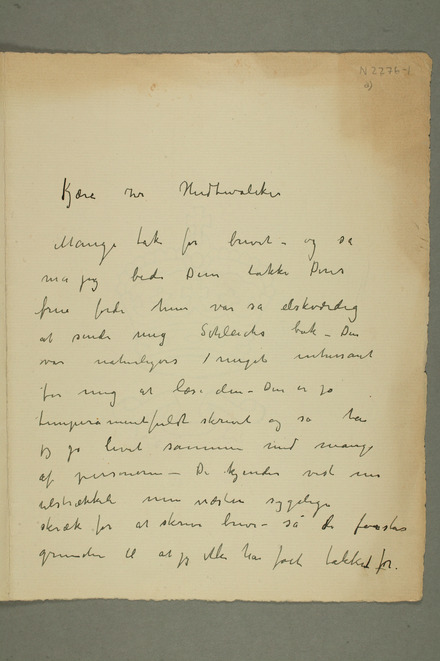 N 2276-1
a)
Kjære Herr Hudtwalcker
Mange tak for brevet – og så
må jeg bede Dem takke Deres
frue fordi hun var så elskværdig
at sende mig Schleichs bok – Den
var naturligvis meget interessant
for mig at læse den – Den er jo
temperamentfuldt skrevet og så har
jeg jo levet sammen med mange
af personerne – De kjender vist nu
min næsten sygelige
skræk for at skrive breve – så De forstår
grunden til at jeg ikke har før takket for.